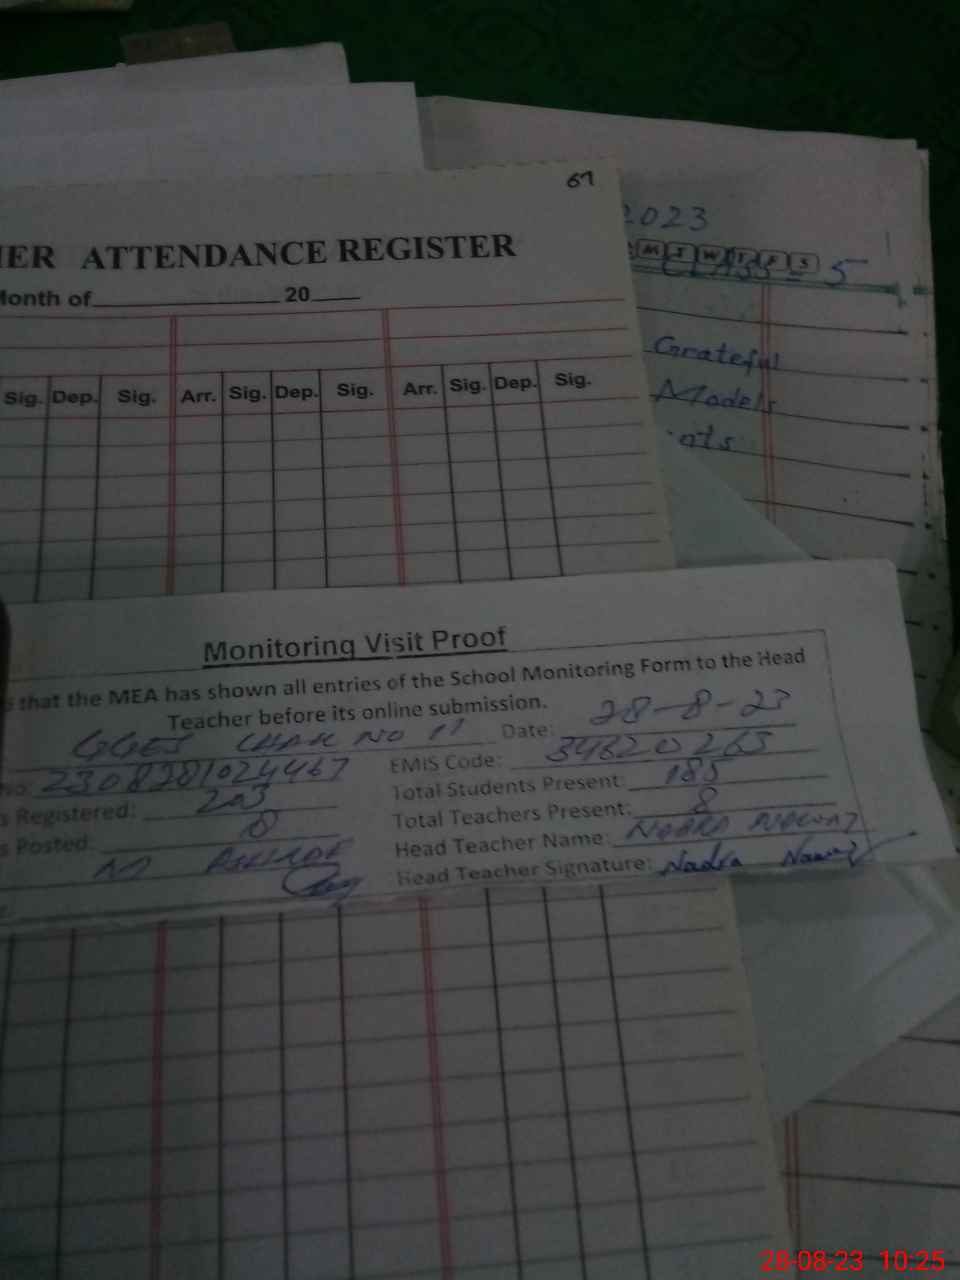 67
HER ATTENDANCE REGISTER
Month of 20
Sig. Dep. Sig. Arr. Sig. Dep. Sig. Arr. Sig. Dep. Sig.
2023
M T W T F S
5
Grateful
Models
Monitoring Visit Proof
that the MEA has shown all entries of the School Monitoring Form to the Head
Teacher before its online submission.
GGES CHAK NO 11 Date: 28-8-23
No: 2308281024467 EMIS Code: 34620263
s Registered: 203 Total Students Present: 185
s Posted: 8 Total Teachers Present: 8
Head Teacher Name: Nadra Nawaz
Head Teacher Signature: Nadra Nawaz
28-08-23 10:25